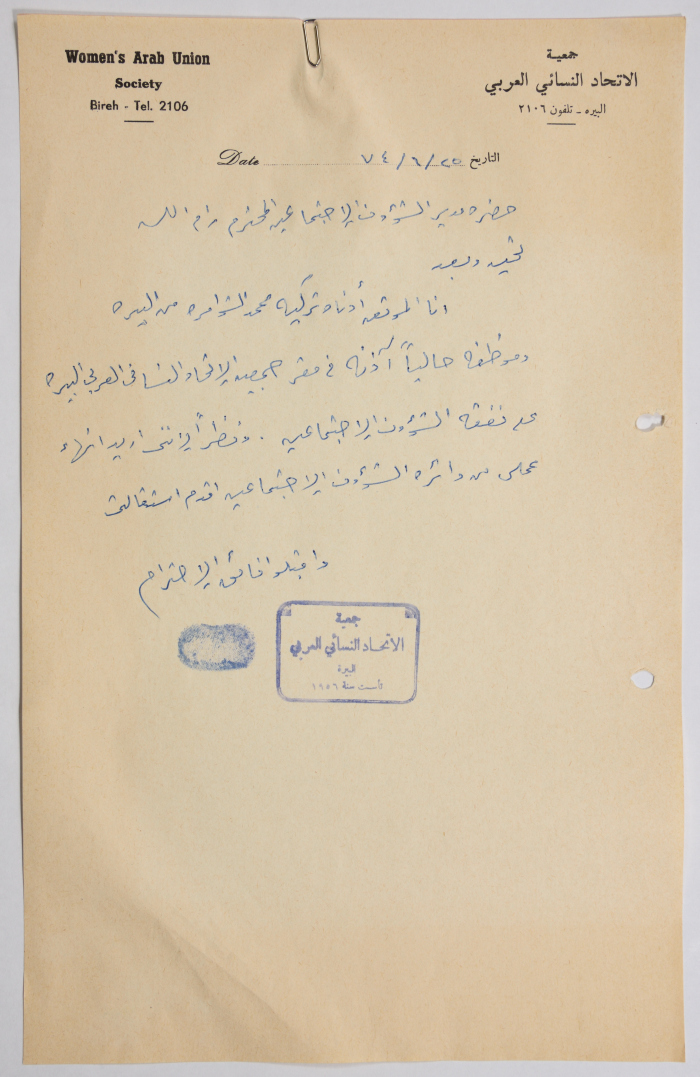 Women's Arab Union
Society
Bireh - Tel. 2106
جمعية
الاتحاد النسائي العربي
البيره - تلفون ٢١٠٦
Date ٧٤/٦/٢٥ التاريخ
حضرة مدير الشؤون الاجتماعية المحترم رام الله
تحية وبعد
انا الموقعه أدناه تركيه محمد الشوامره من البيره
وموظفه حالياً آذنه في مقر جمعية الاتحاد النسائي العربي البيره
على نفقة الشؤون الاجتماعيه . ونظراً لانني اريد انهاء
عملي من دائرة الشؤون الاجتماعيه اقدم استقالتي
واقبلوا فائق الاحترام
جمعية
الاتحاد النسائي العربي
البيرة
تأسست سنة ١٩٥٦